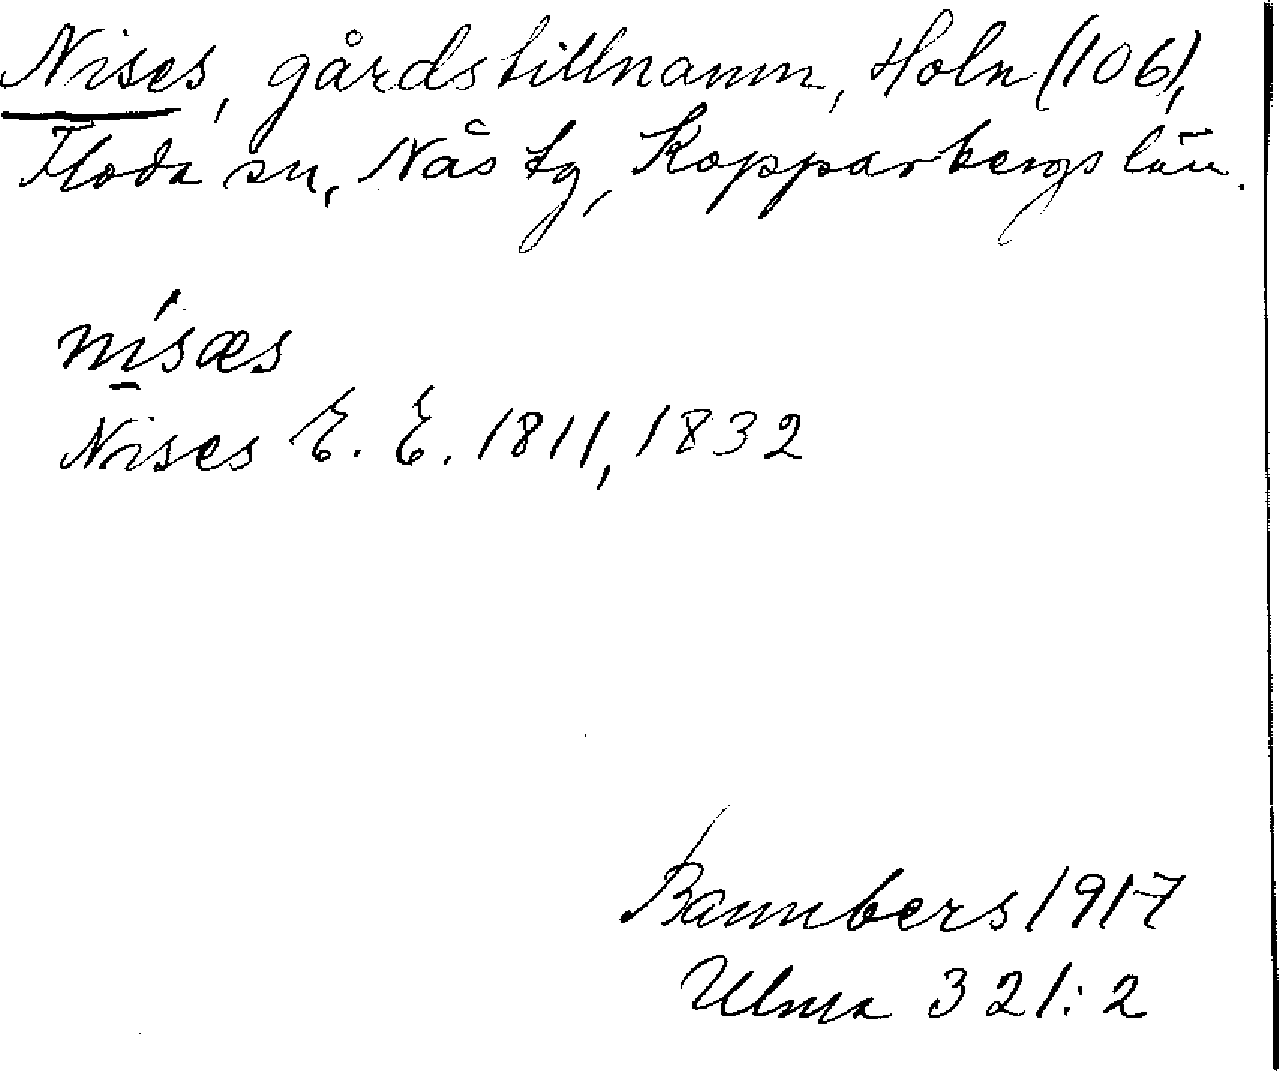 Nises, gårdstillnamn, Holn (106),
Floda sn, Nås tg, Kopparbergs län.
nísæs
Nises E. E. 1811, 1832
Bannbers 1917
Ulma 321:2